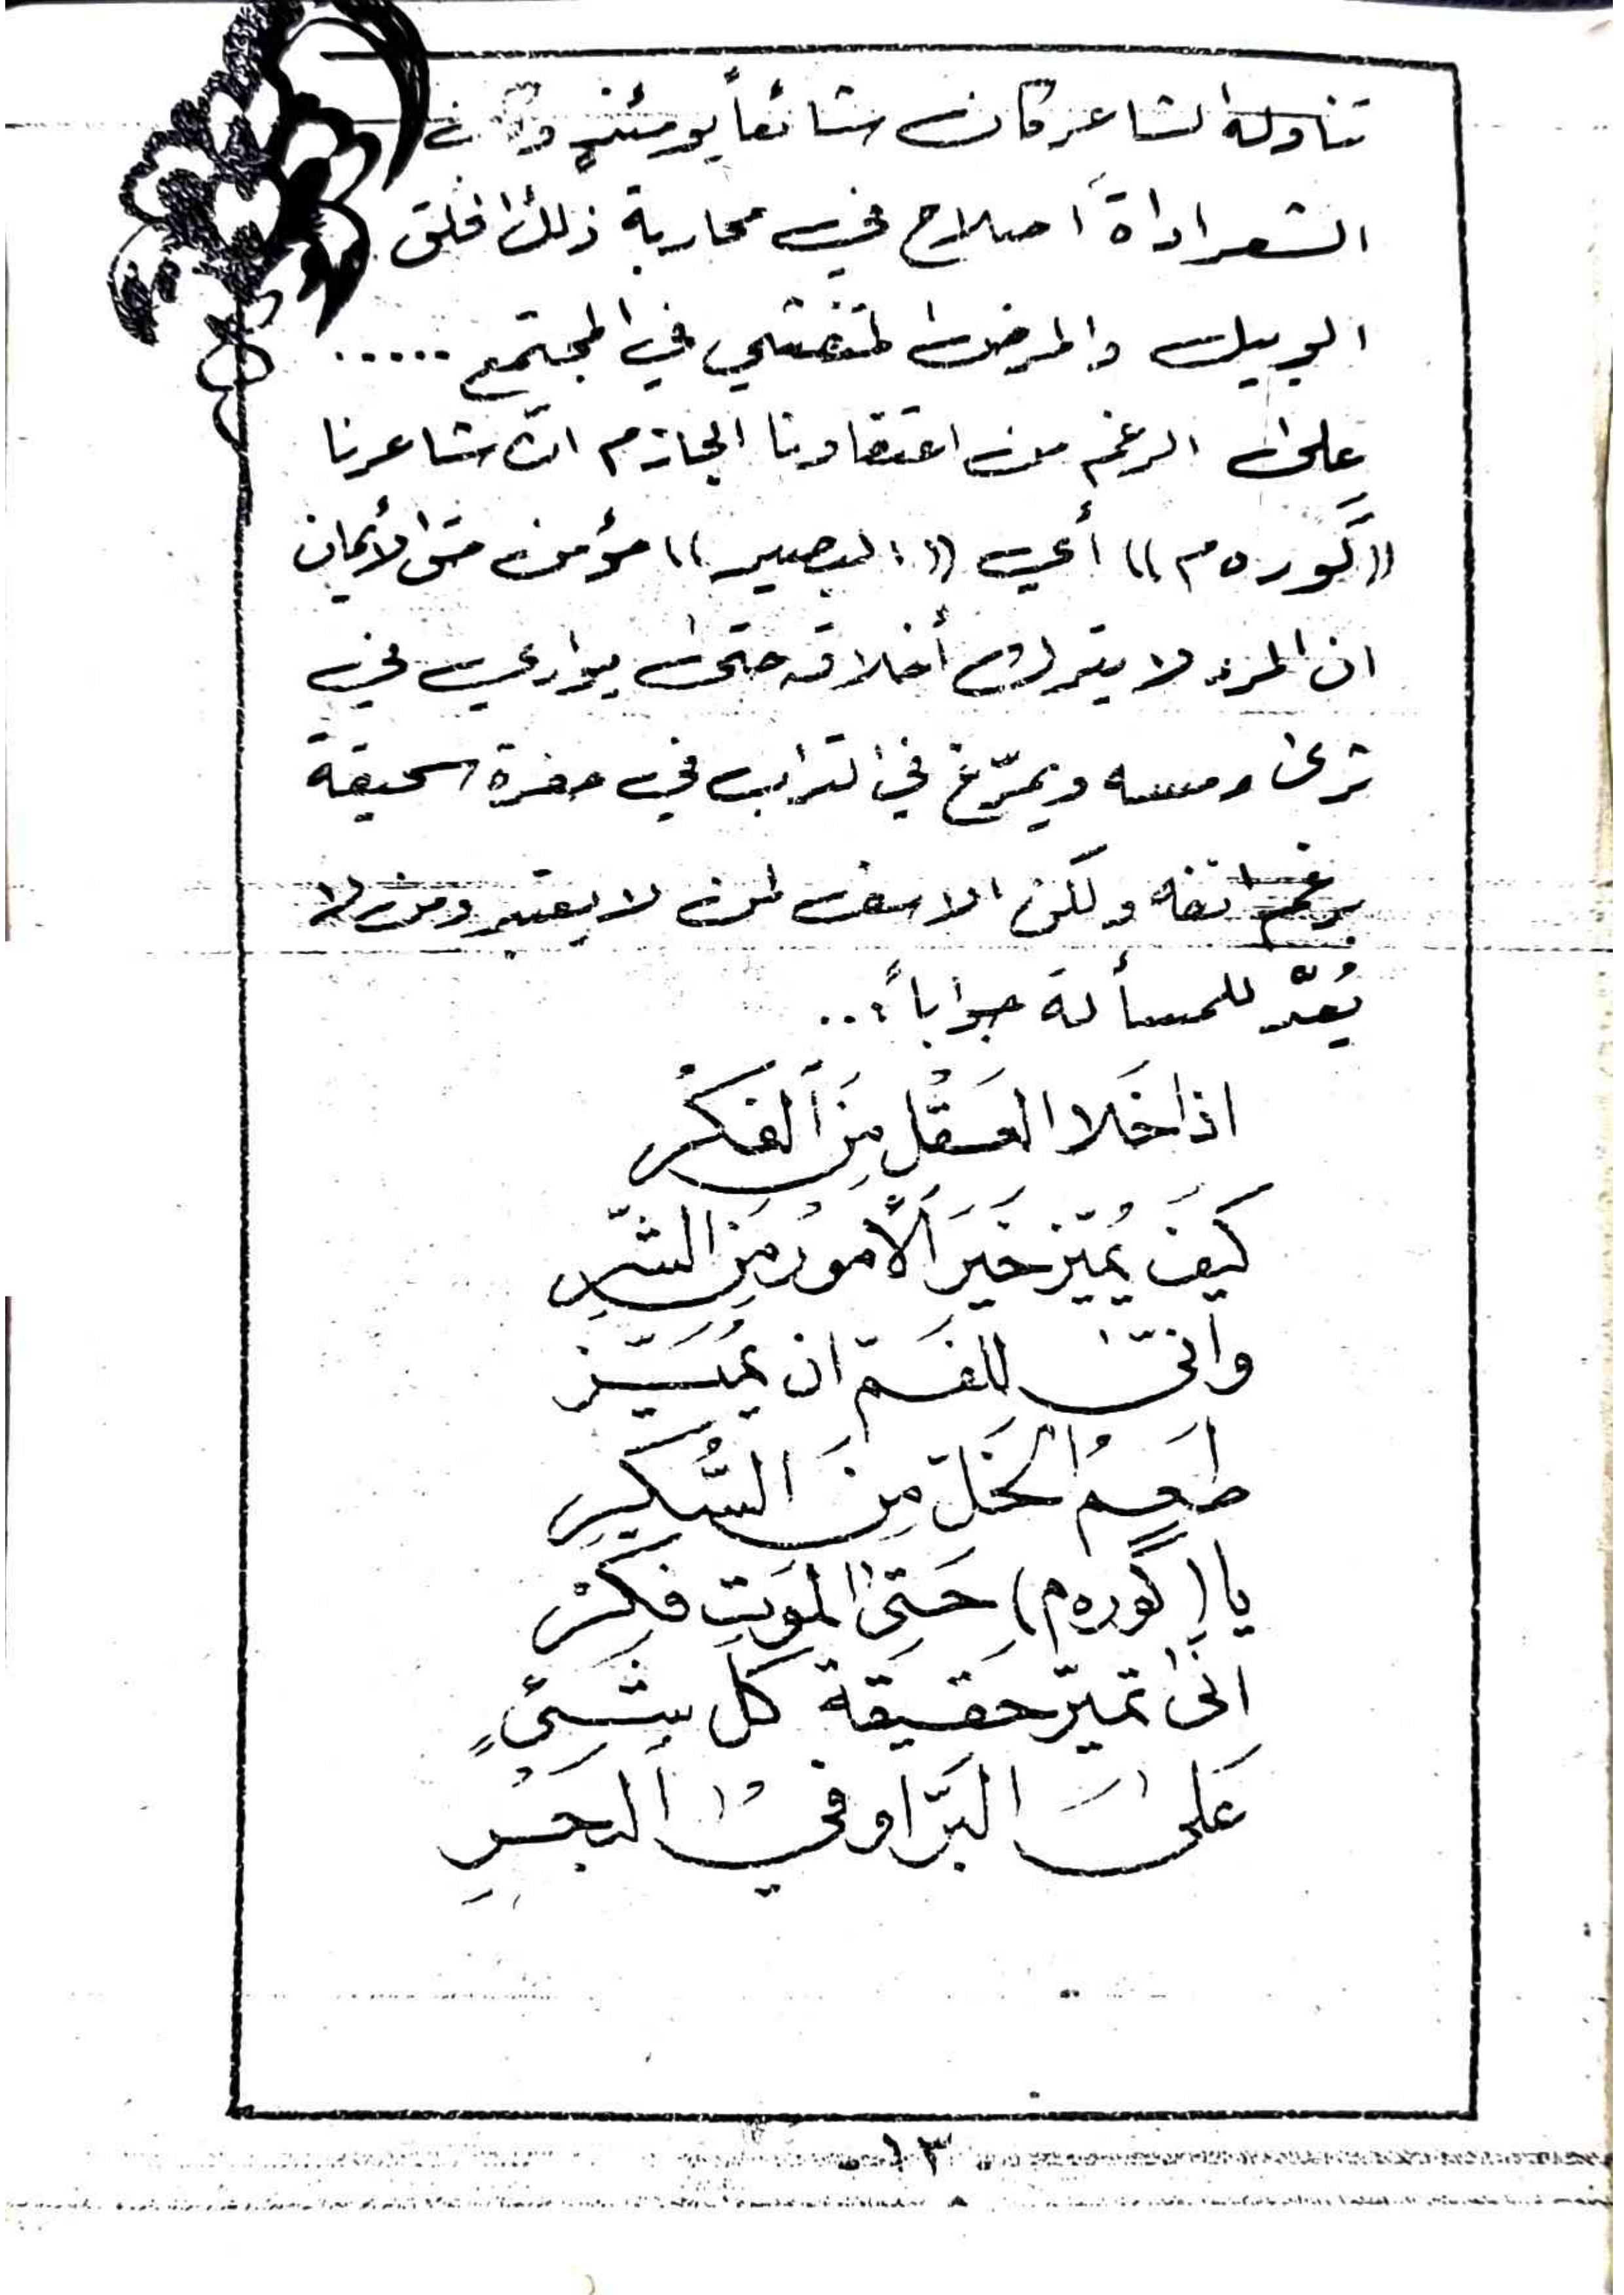 تناوله الشاعر كان شائعاً يومئذٍ وكان
الشعر اداةَ اصلاح في محاربة ذلك الخلق
الوبيل والمرض المتفشي في المجتمع .....
على الرغم من اعتقادنا الجازم انّ شاعرنا
((گوره م)) أي ((البصير)) مؤمن حق الأيمان
ان المرء لا يترك أخلاقه حتى يوارى في
ثرى رمسه ويمرّغ في التراب في حفرة سحيقة
برغم انفه ولكن الاسف لمن لا يعتبر ومن لا
يُعدّ للمسألة جواباً ؛...
اذا خَلا العَقْل مِنَ الفكْر
كَيفَ يُميّز خَيرَ الأمورْ مِنَ الشّرِ
وانّى للفَمّ ان يُمَيّز
طَعمُ الخَلّ مِنَ السُّكرِ
يا (گوره م) حَتى المَوتِ فكِرْ
انى تميّز حَقيقة كل شَئٍ
عَلى البَرّ او في البَحَرِ
.١٣.